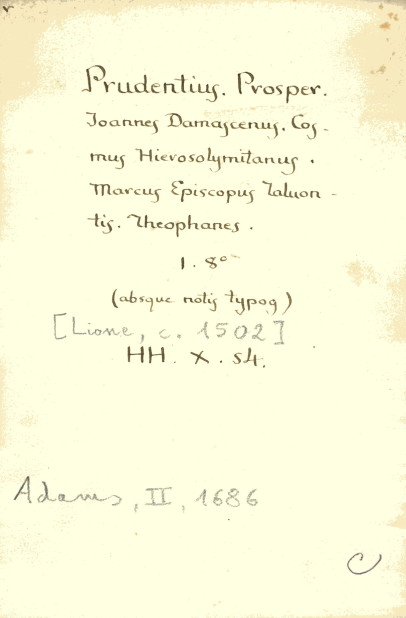 Prudentius. Prosper.
Joannes Damascenus. Cos-
mus Hierosolymitanus.
Marcus Episcopus Taluon-
tis. Theophanes.
1. 8º
(absque notis typog)
[Lione, c. 1502]
HH. X. 54.
Adams, II, 1686